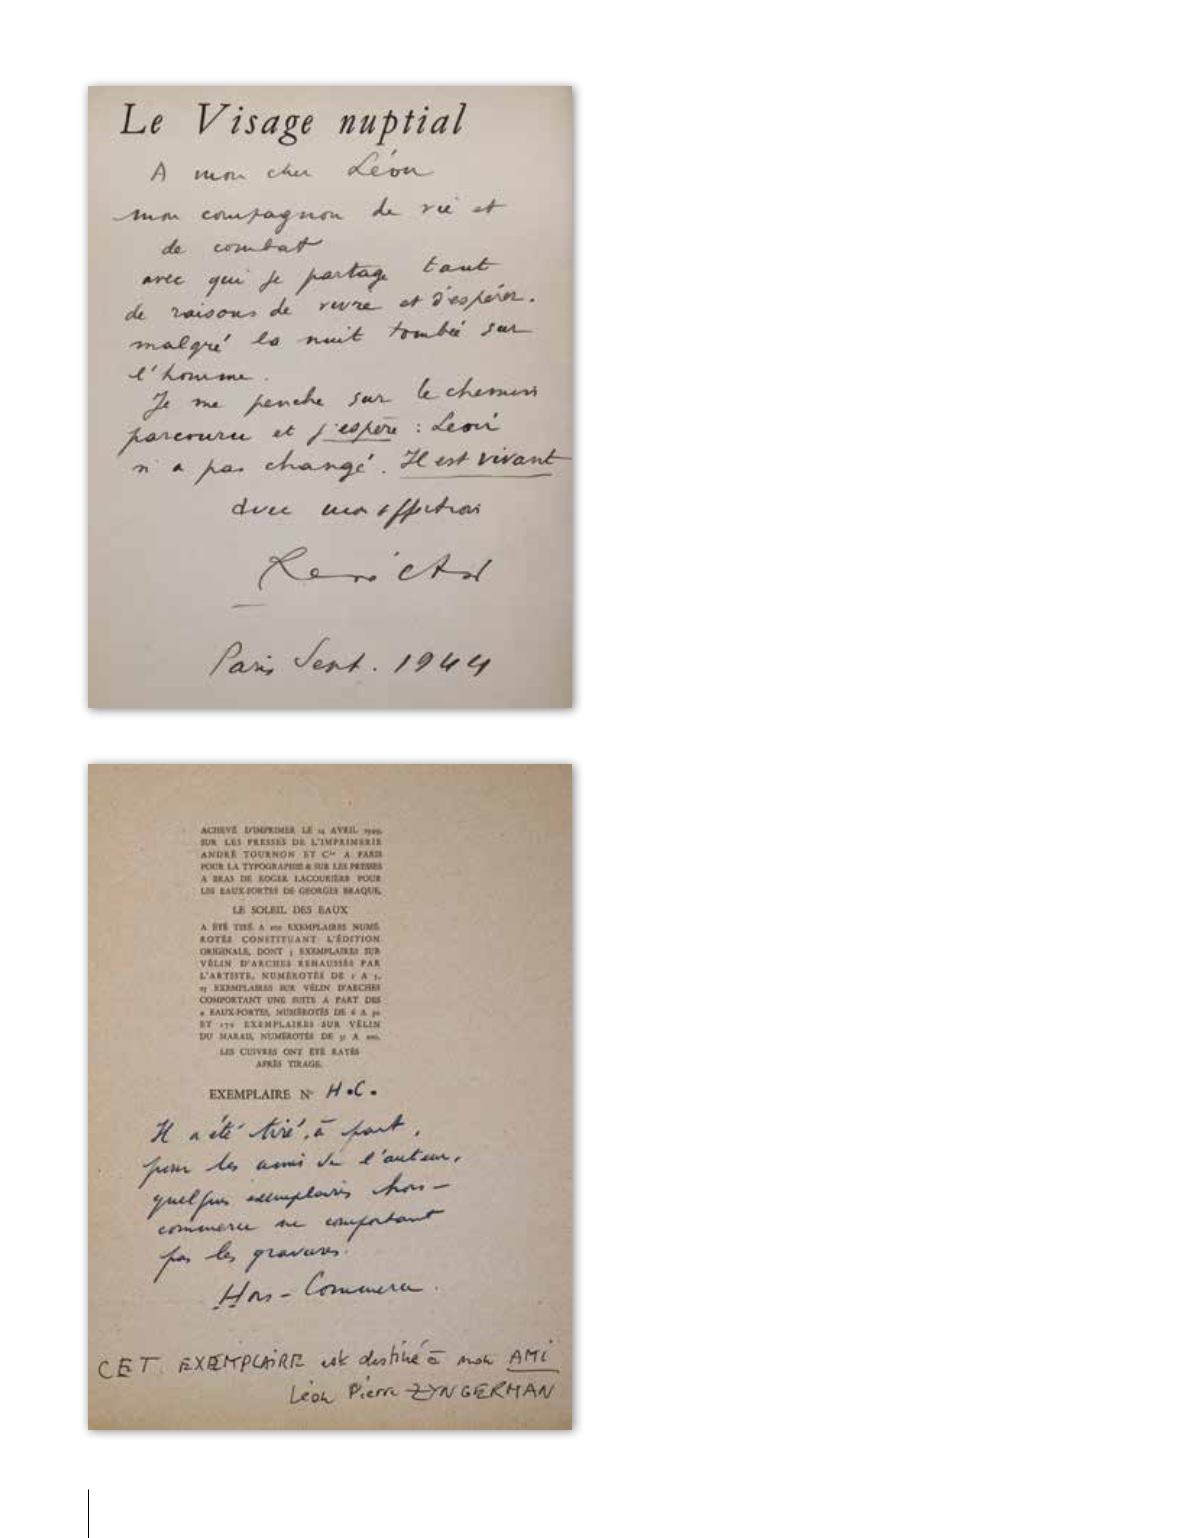 Le Visage nuptial
A mon cher Léon
mon compagnon de vie et
de combat
avec qui je partage tant
de raisons de vivre et d'espérer.
malgré la nuit tombée sur
l'homme.
Je me penche sur le chemin
parcouru et j'espère : Léon
n'a pas changé. Il est vivant
avec mon affection
René Char
Paris Sept. 1944
ACHEVÉ D'IMPRIMER LE 14 AVRIL 1949,
SUR LES PRESSES DE L'IMPRIMERIE
ANDRÉ TOURNON ET Cie A PARIS
POUR LA TYPOGRAPHIE & SUR LES PRESSES
A BRAS DE ROGER LACOURIÈRE POUR
LES EAUX-FORTES DE GEORGES BRAQUE.
LE SOLEIL DES EAUX
A ÉTÉ TIRÉ A 200 EXEMPLAIRES NUMÉ-
ROTÉS CONSTITUANT L'ÉDITION
ORIGINALE, DONT 5 EXEMPLAIRES SUR
VÉLIN D'ARCHES REHAUSSÉS PAR
L'ARTISTE, NUMÉROTÉS DE 1 A 5,
25 EXEMPLAIRES SUR VÉLIN D'ARCHES
COMPORTANT UNE SUITE A PART DES
4 EAUX-FORTES, NUMÉROTÉS DE 6 A 30
ET 170 EXEMPLAIRES SUR VÉLIN
DU MARAIS, NUMÉROTÉS DE 31 A 200.
LES CUIVRES ONT ÉTÉ RAYÉS
APRÈS TIRAGE.
EXEMPLAIRE N° H.C.
Il a été tiré, à part,
pour les amis de l'auteur,
quelques exemplaires hors-
commerce ne comportant
pas les gravures.
Hors-Commerce.
CET EXEMPLAIRE est destiné à mon AMI
Léon Pierre ZYNGERMAN